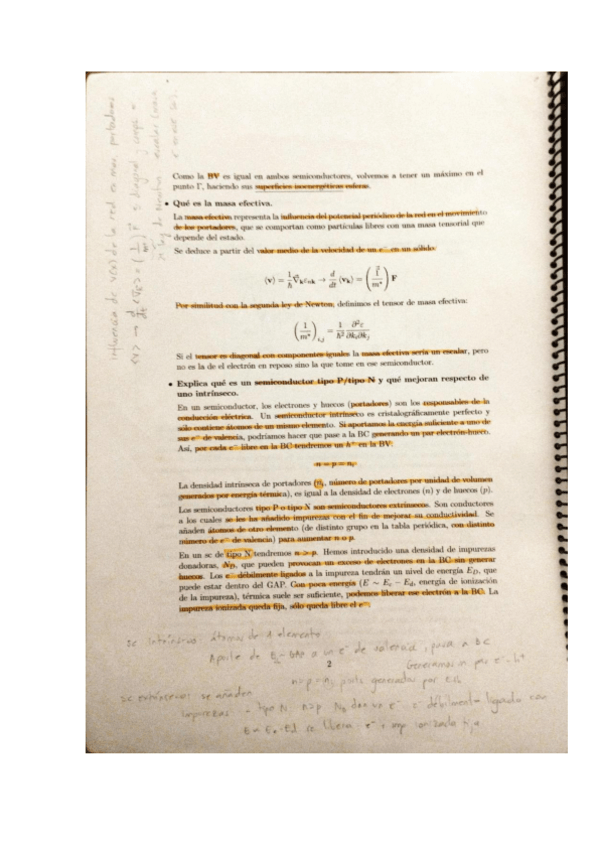 Como la BV es igual en ambos semiconductores, volvemos a tener un máximo en el
punto Γ, haciendo sus superficies isoenergéticas esferas.
• Qué es la masa efectiva.
La masa efectiva representa la influencia del potencial periódico de la red en el movimiento
de los portadores, que se comportan como partículas libres con una masa tensorial que
depende del estado.
Se deduce a partir del valor medio de la velocidad de un e⁻ en un sólido:
⟨v⟩ = 1/ħ ∇⃗ₖεₙₖ → d/dt ⟨vₖ⟩ = (1⃗/m*) F
Por similitud con la segunda ley de Newton, definimos el tensor de masa efectiva:
(1/m*)ᵢ,ⱼ = 1/ħ² ∂²ε/∂kᵢ∂kⱼ
Si el tensor es diagonal con componentes iguales la masa efectiva sería un escalar, pero
no es la de el electrón en reposo sino la que tome en ese semiconductor.
• Explica qué es un semiconductor tipo P/tipo N y qué mejoran respecto de
uno intrínseco.
En un semiconductor, los electrones y huecos (portadores) son los responsables de la
conducción eléctrica. Un semiconductor intrínseco es cristalográficamente perfecto y
sólo contiene átomos de un mismo elemento. Si aportamos la energía suficiente a uno de
sus e⁻ de valencia, podríamos hacer que pase a la BC generando un par electrón-hueco.
Así, por cada e⁻ libre en la BC tendremos un h⁺ en la BV:
n = p = nᵢ
La densidad intrínseca de portadores (nᵢ, número de portadores por unidad de volumen
generados por energía térmica), es igual a la densidad de electrones (n) y de huecos (p).
Los semiconductores tipo P o tipo N son semiconductores extrínsecos. Son conductores
a los cuales se les ha añadido impurezas con el fin de mejorar su conductividad. Se
añaden átomos de otro elemento (de distinto grupo en la tabla periódica, con distinto
número de e⁻ de valencia) para aumentar n o p.
En un sc de tipo N tendremos n > p. Hemos introducido una densidad de impurezas
donadoras, N_D, que pueden provocan un exceso de electrones en la BC sin generar
huecos. Los e⁻ débilmente ligados a la impureza tendrán un nivel de energía E_D, que
puede estar dentro del GAP. Con poca energía (E ∼ E_c − E_d, energía de ionización
de la impureza), térmica suele ser suficiente, podemos liberar ese electrón a la BC. La
impureza ionizada queda fija, sólo queda libre el e⁻.
sc intrínseco: átomos de 1 elemento
Aporte de E = GAP a un e⁻ de valencia, pasa a BC
2
Generamos n par e⁻-h⁺
sc extrínseco: se añaden
impurezas → tipo N n>p